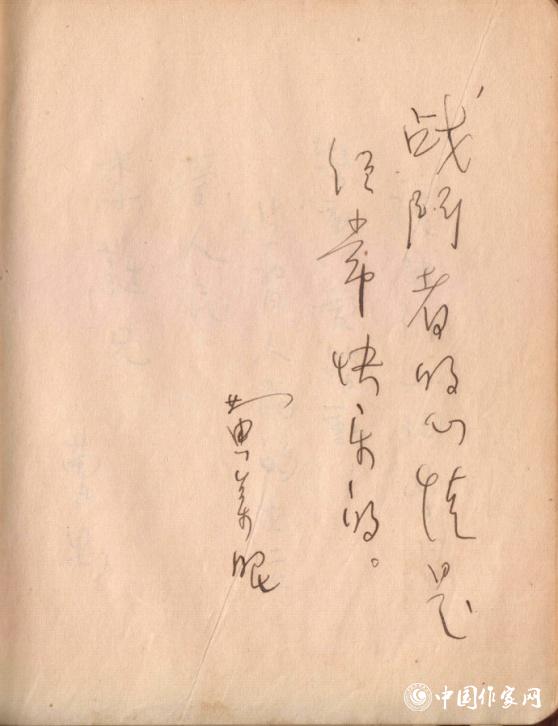 战鬥者的心情是
经常快乐的。
黄药眠
中国作家网